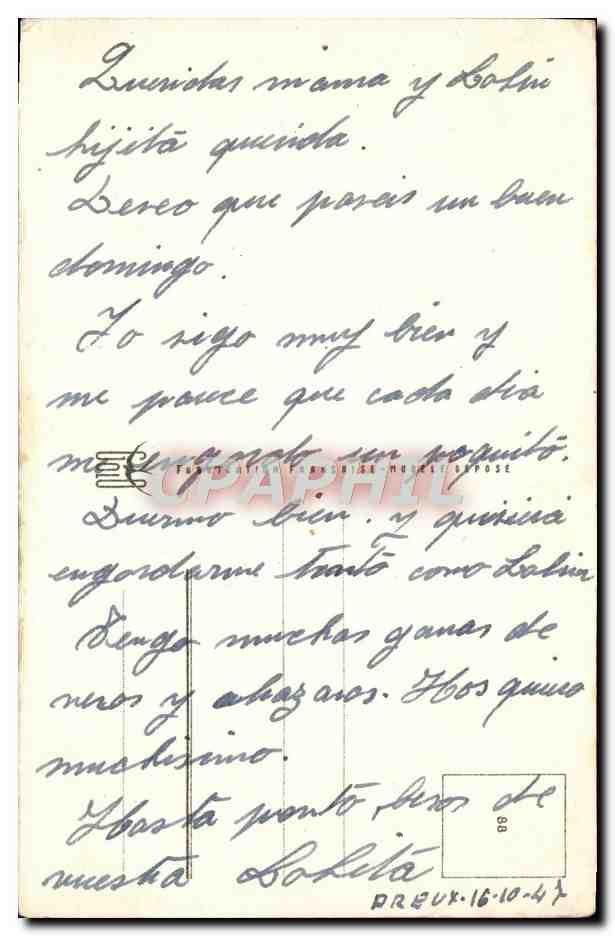 Queridas mama y Lolin
hijita querida.
Deseo que paseis un buen
domingo.
Yo sigo muy bien y
me parece que cada dia
me engordo un poquito.
FABRICATION FRANÇAISE - MODELE DEPOSE
CPAPHIL
Duermo bien. y quisiera
engordarme tanto como Lolin
Tengo muchas ganas de
veros y abrazaros. Hos quiero
muchisimo.
88
Hasta pronto, besos de
vuestra Lolita
DREUX-16-10-47